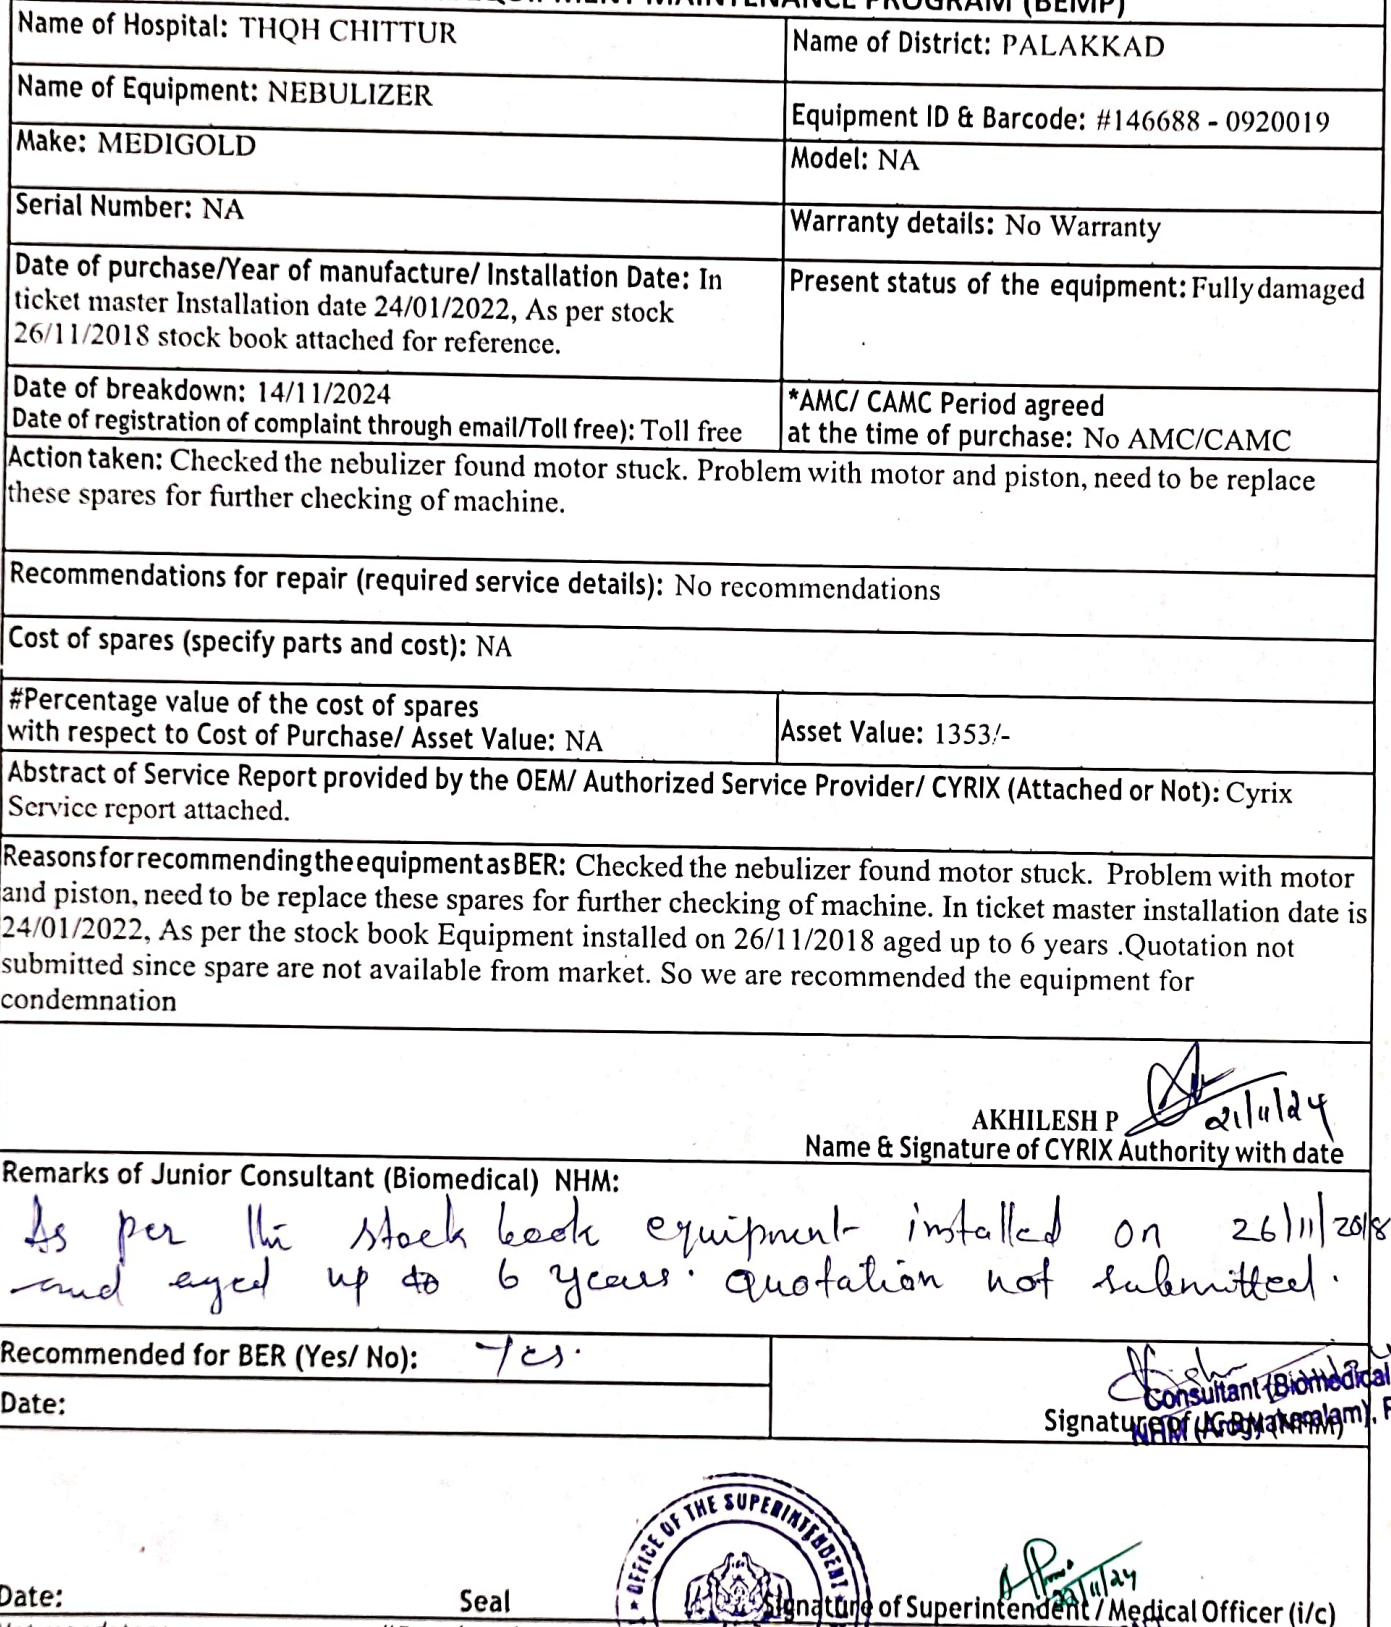 EQUIPMENT MAINTENANCE PROGRAM (BEMP)
Name of Hospital: THQH CHITTUR
Name of District: PALAKKAD
Name of Equipment: NEBULIZER
Equipment ID & Barcode: #146688 - 0920019
Make: MEDIGOLD
Model: NA
Serial Number: NA
Warranty details: No Warranty
Date of purchase/Year of manufacture/ Installation Date: In
ticket master Installation date 24/01/2022, As per stock
26/11/2018 stock book attached for reference.
Present status of the equipment: Fully damaged
Date of breakdown: 14/11/2024
Date of registration of complaint through email/Toll free): Toll free
*AMC/ CAMC Period agreed
at the time of purchase: No AMC/CAMC
Action taken: Checked the nebulizer found motor stuck. Problem with motor and piston, need to be replace
these spares for further checking of machine.
Recommendations for repair (required service details): No recommendations
Cost of spares (specify parts and cost): NA
#Percentage value of the cost of spares
with respect to Cost of Purchase/ Asset Value: NA
Asset Value: 1353/-
Abstract of Service Report provided by the OEM/ Authorized Service Provider/ CYRIX (Attached or Not): Cyrix
Service report attached.
Reasons for recommending the equipment as BER: Checked the nebulizer found motor stuck. Problem with motor
and piston, need to be replace these spares for further checking of machine. In ticket master installation date is
24/01/2022, As per the stock book Equipment installed on 26/11/2018 aged up to 6 years .Quotation not
submitted since spare are not available from market. So we are recommended the equipment for
condemnation
AKHILESH P 21/11/24
Name & Signature of CYRIX Authority with date
Remarks of Junior Consultant (Biomedical) NHM:
As per the stock book equipment installed on 26/11/2018
and aged up to 6 years. Quotation not submitted.
Recommended for BER (Yes/ No): Yes.
Date:
Consultant (Biomedical
Signature of
OFFICE OF THE SUPERINTENDENT
22/11/24
Date:
Seal
Signature of Superintendent / Medical Officer (i/c)